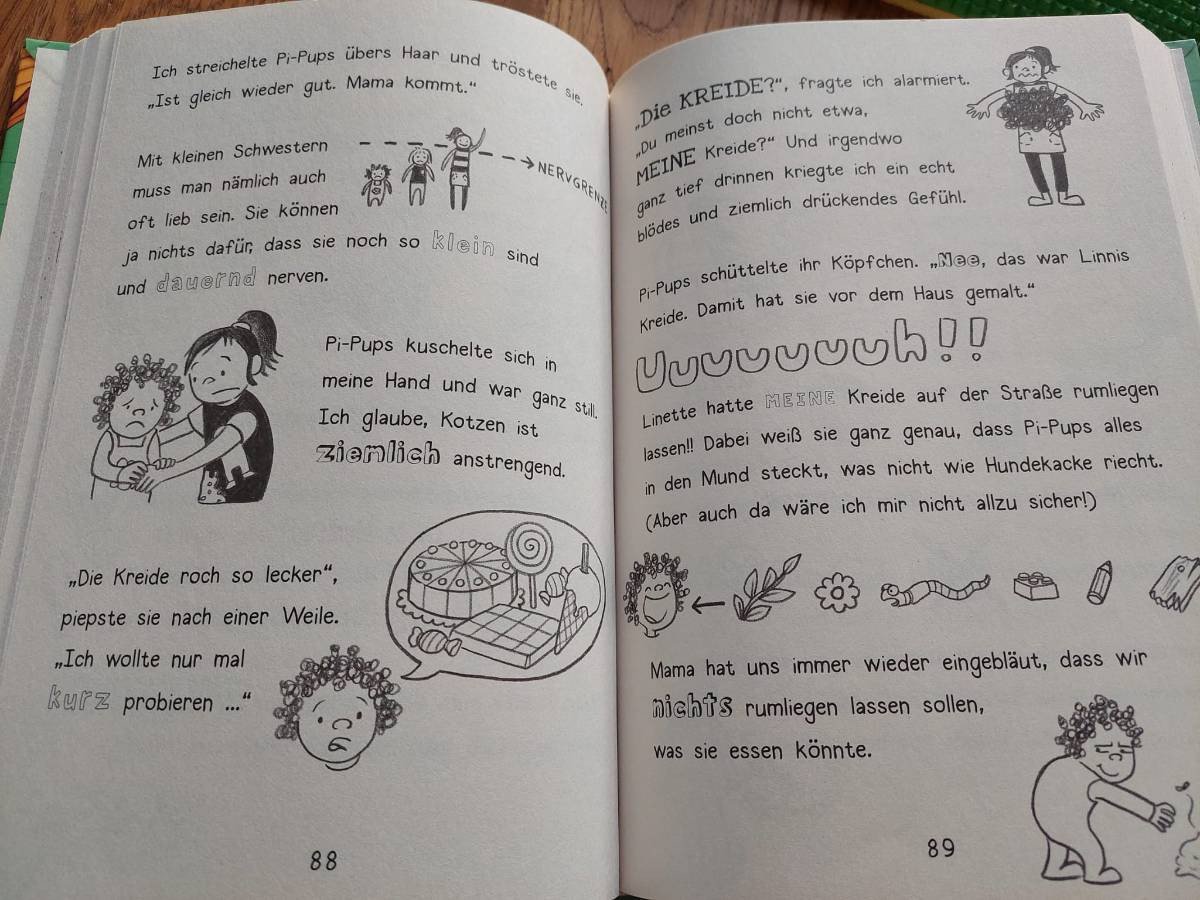 Ich streichelte Pi-Pups übers Haar und tröstete sie.
„Ist gleich wieder gut. Mama kommt.“
Mit kleinen Schwestern
muss man nämlich auch
oft lieb sein. Sie können
ja nichts dafür, dass sie noch so klein sind
und dauernd nerven.
NERVGRENZE
Pi-Pups kuschelte sich in
meine Hand und war ganz still.
Ich glaube, Kotzen ist
ziemlich anstrengend.
„Die Kreide roch so lecker“,
piepste sie nach einer Weile.
„Ich wollte nur mal
kurz probieren ...“
88
„Die KREIDE?“, fragte ich alarmiert.
„Du meinst doch nicht etwa,
MEINE Kreide?“ Und irgendwo
ganz tief drinnen kriegte ich ein echt
blödes und ziemlich drückendes Gefühl.
Pi-Pups schüttelte ihr Köpfchen. „Nee, das war Linnis
Kreide. Damit hat sie vor dem Haus gemalt.“
Uuuuuuuh!!
Linette hatte MEINE Kreide auf der Straße rumliegen
lassen!! Dabei weiß sie ganz genau, dass Pi-Pups alles
in den Mund steckt, was nicht wie Hundekacke riecht.
(Aber auch da wäre ich mir nicht allzu sicher!)
Mama hat uns immer wieder eingebläut, dass wir
nichts rumliegen lassen sollen,
was sie essen könnte.
89